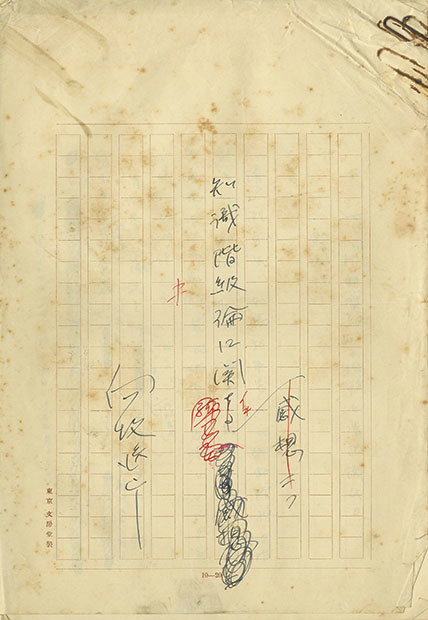 感想二つ
知識階級論に関する
向坂逸郎
東京 文房堂製
10—20